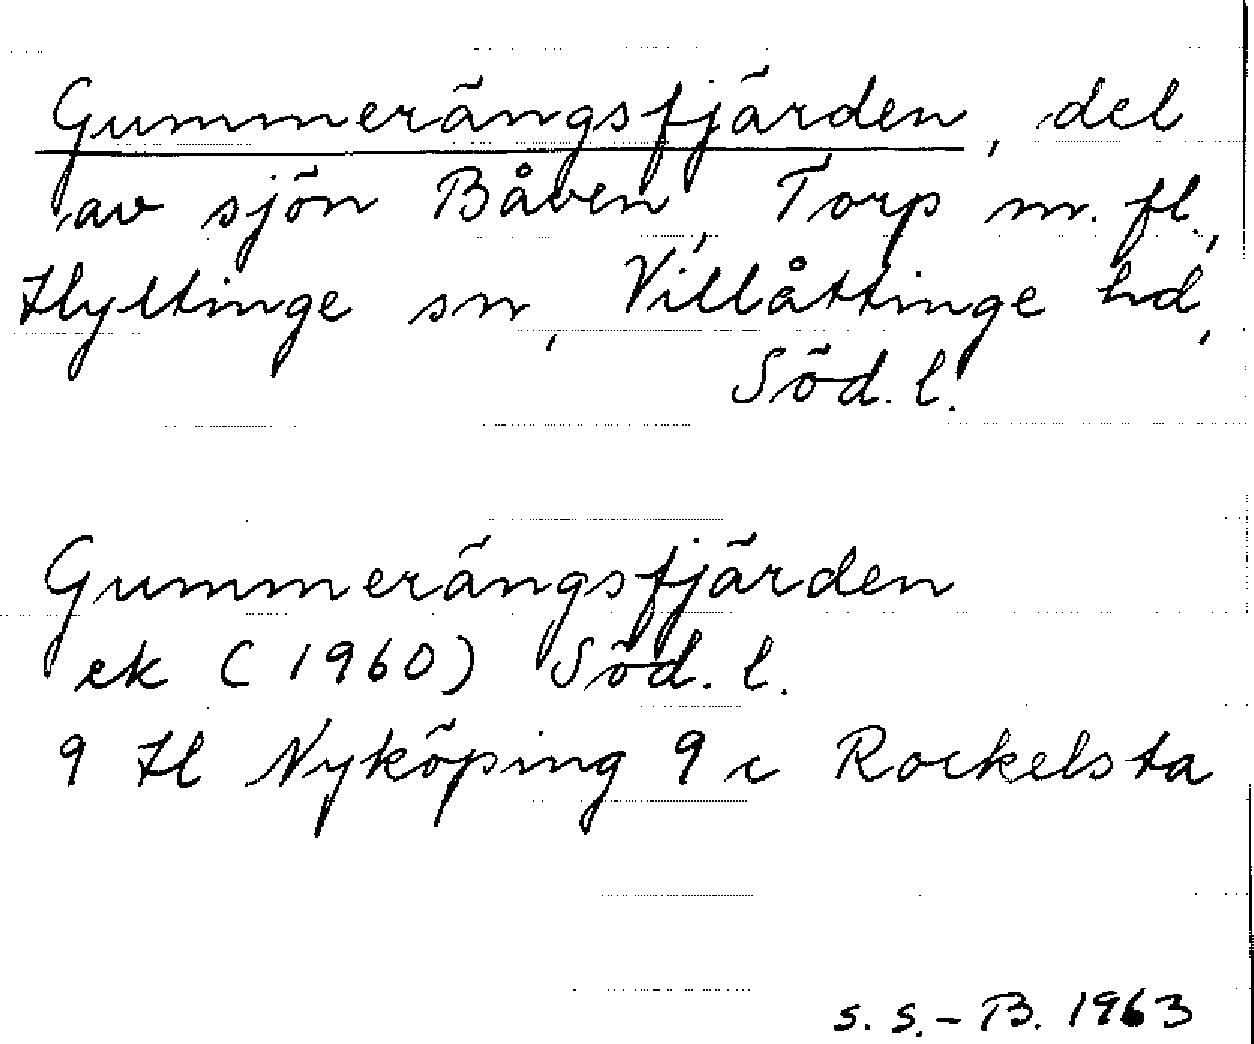 Gummerängsfjärden, del
av sjön Båven, Torp m. fl.,
Hyltinge sn, Villåttinge hd,
Söd. l.
Gummerängsfjärden
ek (1960) Söd. l.
9 H Nyköping 9 c Rockelsta
S. S.-B. 1963